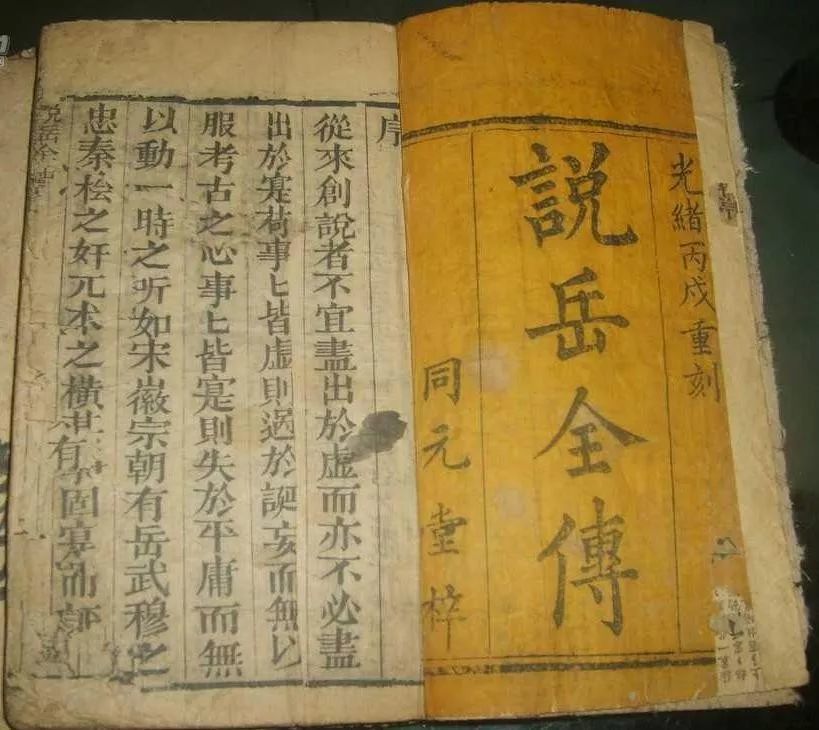 光緒丙戌重刻
説岳全傳
同元堂梓
序
從來創說者不宜盡出於虛而亦不必盡
出於寔苟事匕皆虛則過於誕妄而無以
服考古之心事匕皆寔則失於平庸而無
以動一時之听如宋徽宗朝有岳武穆之
忠秦桧之奸兀术之橫其固寔而
說岳全